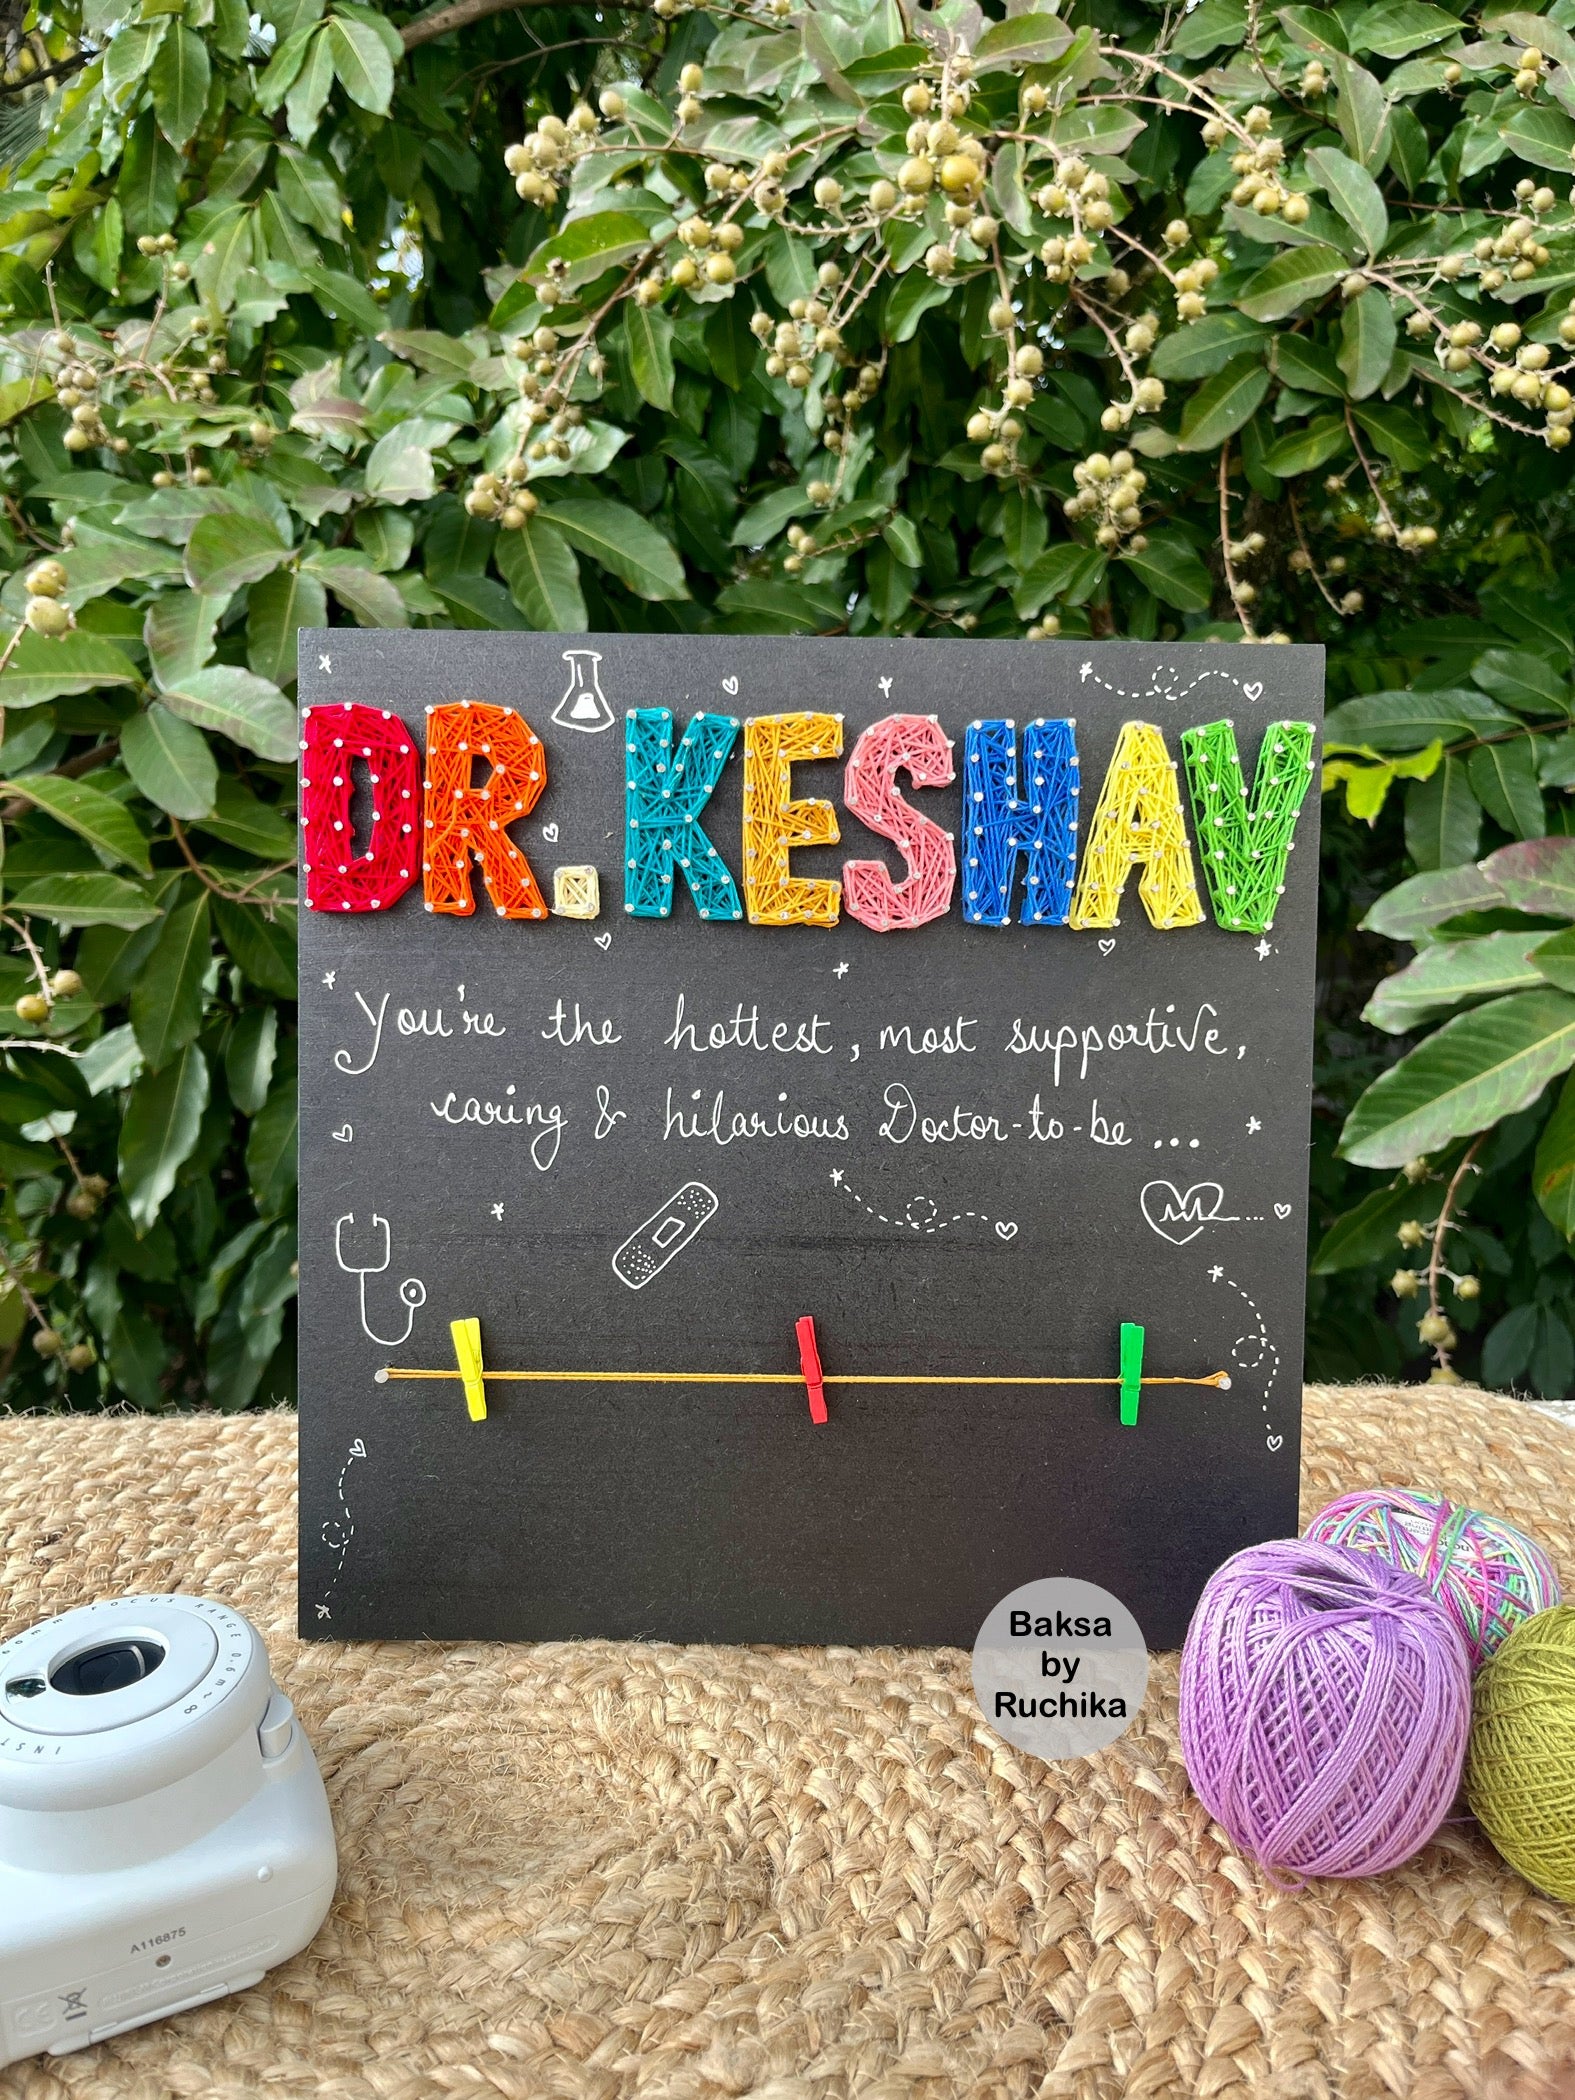 DR.KESHAV
You're the hottest, most supportive,
caring & hilarious Doctor-to-be...
Baksa
by
Ruchika
FOCUS RANGE 0.6m~∞
INST
A116875